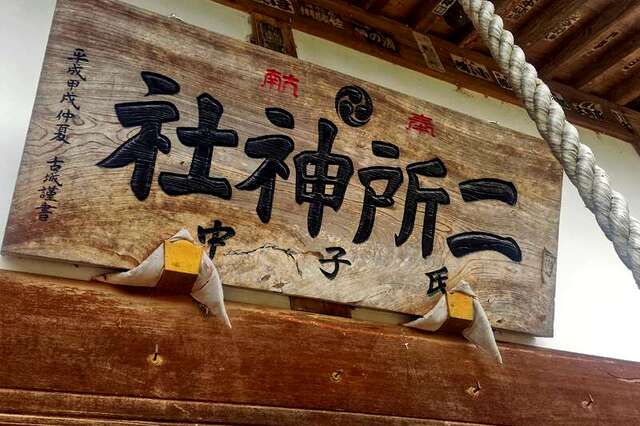 奉献
二所神社
氏子中
平成甲戌仲夏 古城謹書